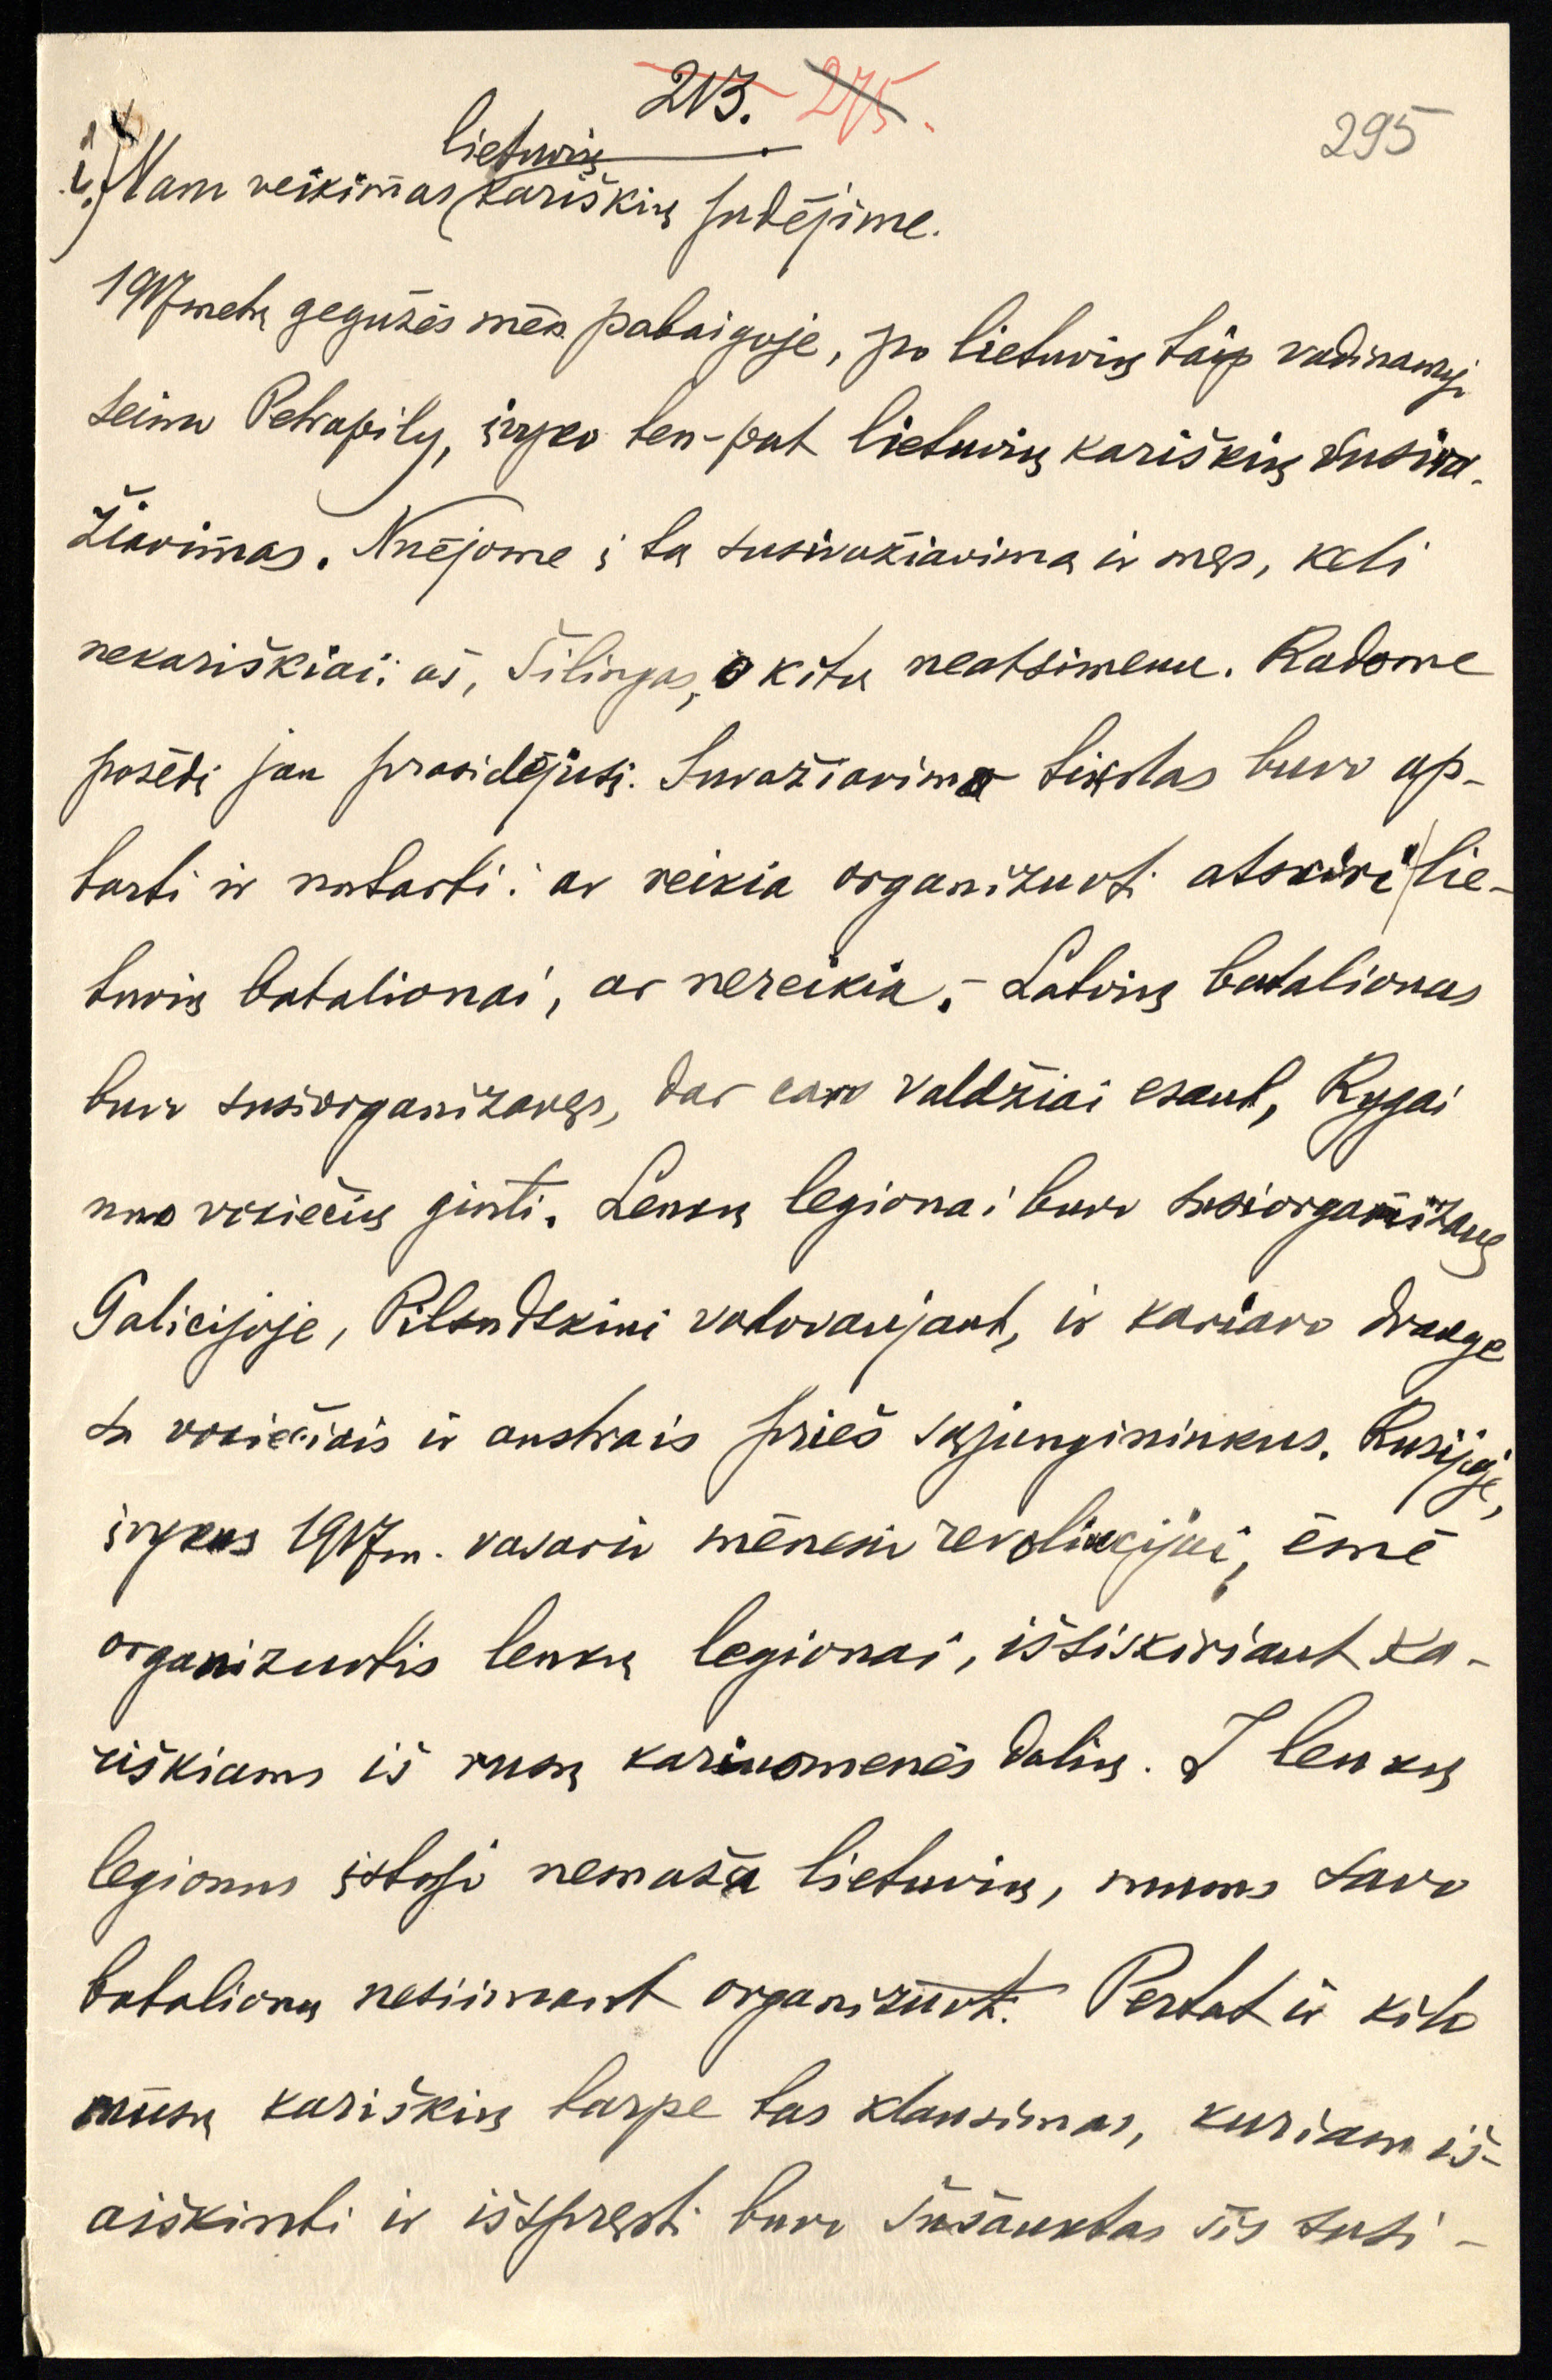 213. 275.
295
lietuvių
i) Mano veikimas kariškių judėjime.
1917 metų gegužės mėn. pabaigoje, po lietuvių taip vadinamojo
seimo Petrapily, įvyko ten-pat lietuvių kariškių susiva-
žiavimas. Nuėjome į tą susivažiavimą ir mes, keli
nekariškiai: aš, Šilingas, o kitų neatsimenu. Radome
posėdį jau prasidėjusį. Suvažiavimo tikslas buvo ap-
tarti ir nutarti: ar reikia organizuoti atskiri lie-
tuvių batalionai, ar nereikia. - Latvių batalionas
buvo susiorganizavęs, dar caro valdžiai esant, Rygai
nuo vokiečių ginti. Lenkų legionai buvo susiorganizavę
Galicijoje, Pilsudskiui vadovaujant, ir kariavo drauge
su vokiečiais ir austrais prieš sąjungininkus. Rusijoje,
įvykus 1917 m. vasario mėnesio revoliucijai, ėmė
organizuotis lenkų legionai, išsiskiriant ka-
riškiams iš rusų kariuomenės dalių. Į lenkų
legionus įstojo nemaža lietuvių, mums savo
batalionų nesiimant organizuoti. Pertat ir kilo
mūsų kariškių tarpe tas klausimas, kuriam iš-
aiškinti ir išspręsti buvo sušauktas šis susi-